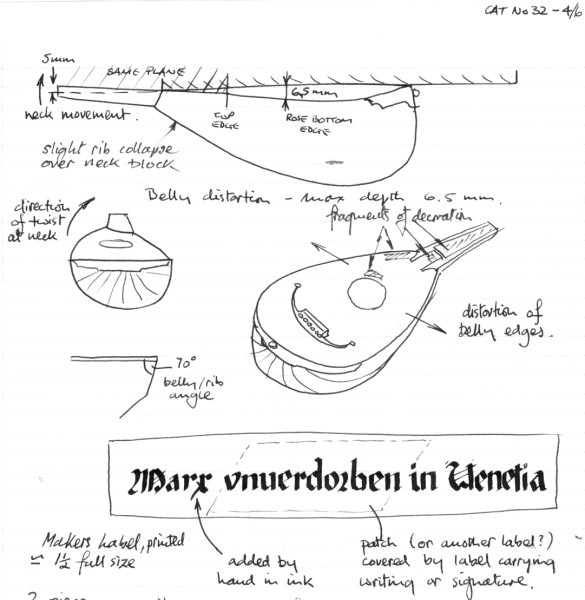 CAT No 32 – 4/6
5mm
SAME PLANE
6,5mm
neck movement.
CUP
EDGE
ROSE BOTTOM
EDGE
slight rib collapse
over neck block
Belly distortion – max depth 6.5 mm.
direction
of twist
at neck
fragments of decoration
distortion of
belly edges.
70°
belly/rib
angle
Marx vnuerdorben in Venetia
Makers Label, printed
≃ 1½ full size
added by
hand in ink
patch (or another label?)
covered by label carrying
writing or signature.